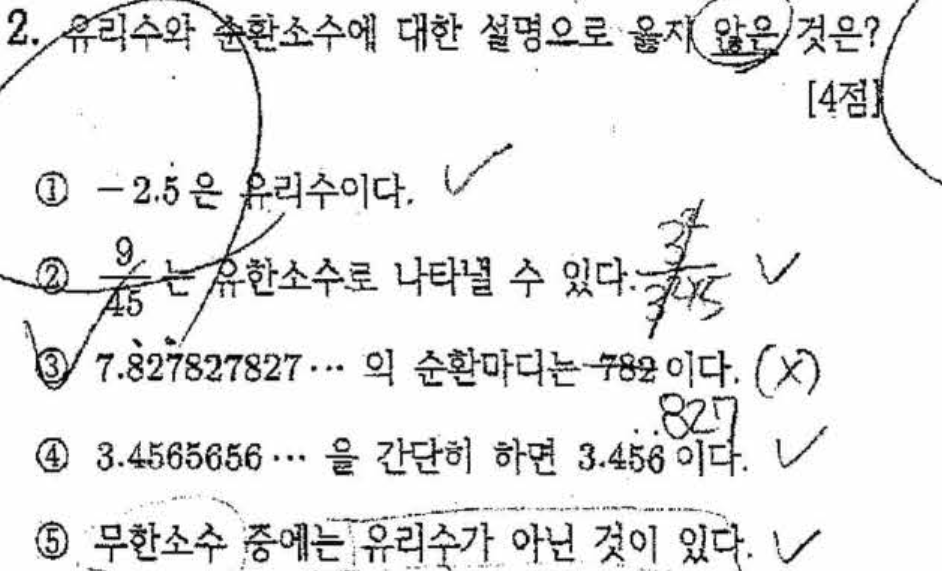 2. 유리수와 순환소수에 대한 설명으로 옳지 않은 것은?
[4점]
① −2.5̇ 은 유리수이다.
② 9/45 는 유한소수로 나타낼 수 있다.
③ 7.827827827⋯ 의 순환마디는 782 이다. (X)
827
④ 3.4565656⋯ 을 간단히 하면 3.45̇6̇ 이다.
⑤ 무한소수 중에는 유리수가 아닌 것이 있다.